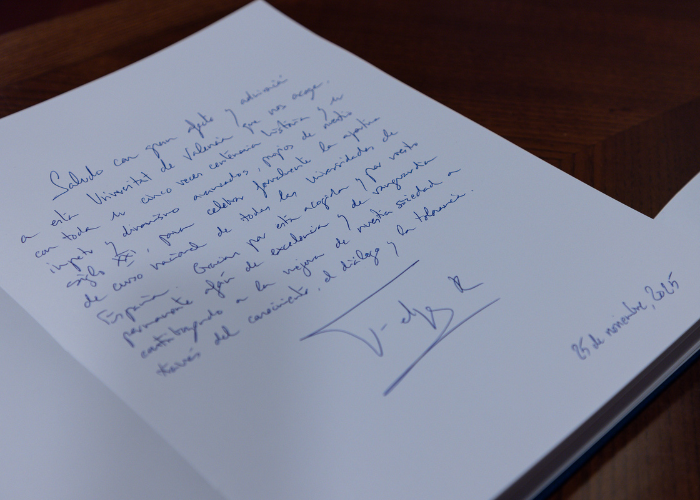 Saludo con gran afecto y admiración
a esta Universitat de Valencia que nos acoge,
con toda su cinco veces centenaria historia y su
ímpetu y dinamismo avanzados, propios de nuestro
siglo XXI, para celebrar formalmente la apertura
de curso nacional de todas las Universidades de
España. Gracias por esta acogida y por vuestro
permanente afán de excelencia y de vanguardia
contribuyendo a la mejora de nuestra sociedad a
través del conocimiento, el diálogo y la tolerancia.
R
25 de noviembre, 2025